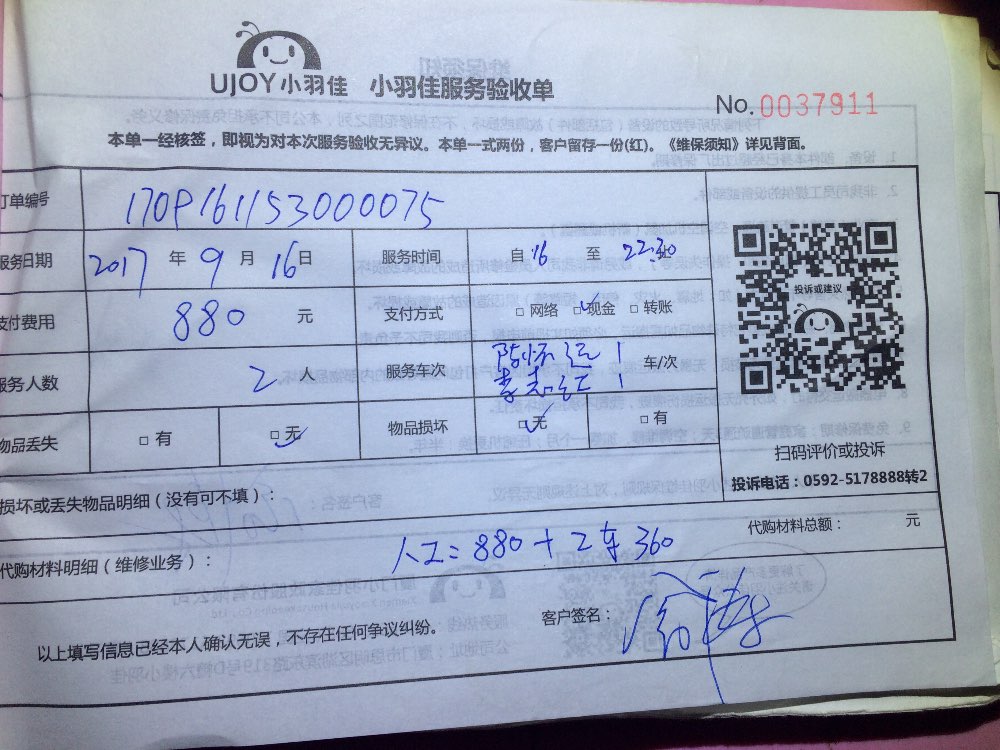 UJOY小羽佳 小羽佳服务验收单
No.0037911
本单一经核签，即视为对本次服务验收无异议。本单一式两份，客户留存一份(红)。《维保须知》详见背面。
订单编号 1709161153000075
服务日期 2017 年 9 月 16日 服务时间 自 16 至 22:30
投诉或建议
支付费用 880 元 支付方式 □ 网络 □ 现金 □ 转账
服务人数 2 人 服务车次 1 1 车/次
物品丢失 □ 有 □ 无 物品损坏 □ 无 □ 有
扫码评价或投诉
投诉电话：0592-5178888转2
损坏或丢失物品明细（没有可不填）：
代购材料明细（维修业务）： 人工=880+2车360 代购材料总额： 元
以上填写信息已经本人确认无误，不存在任何争议纠纷。 客户签名：